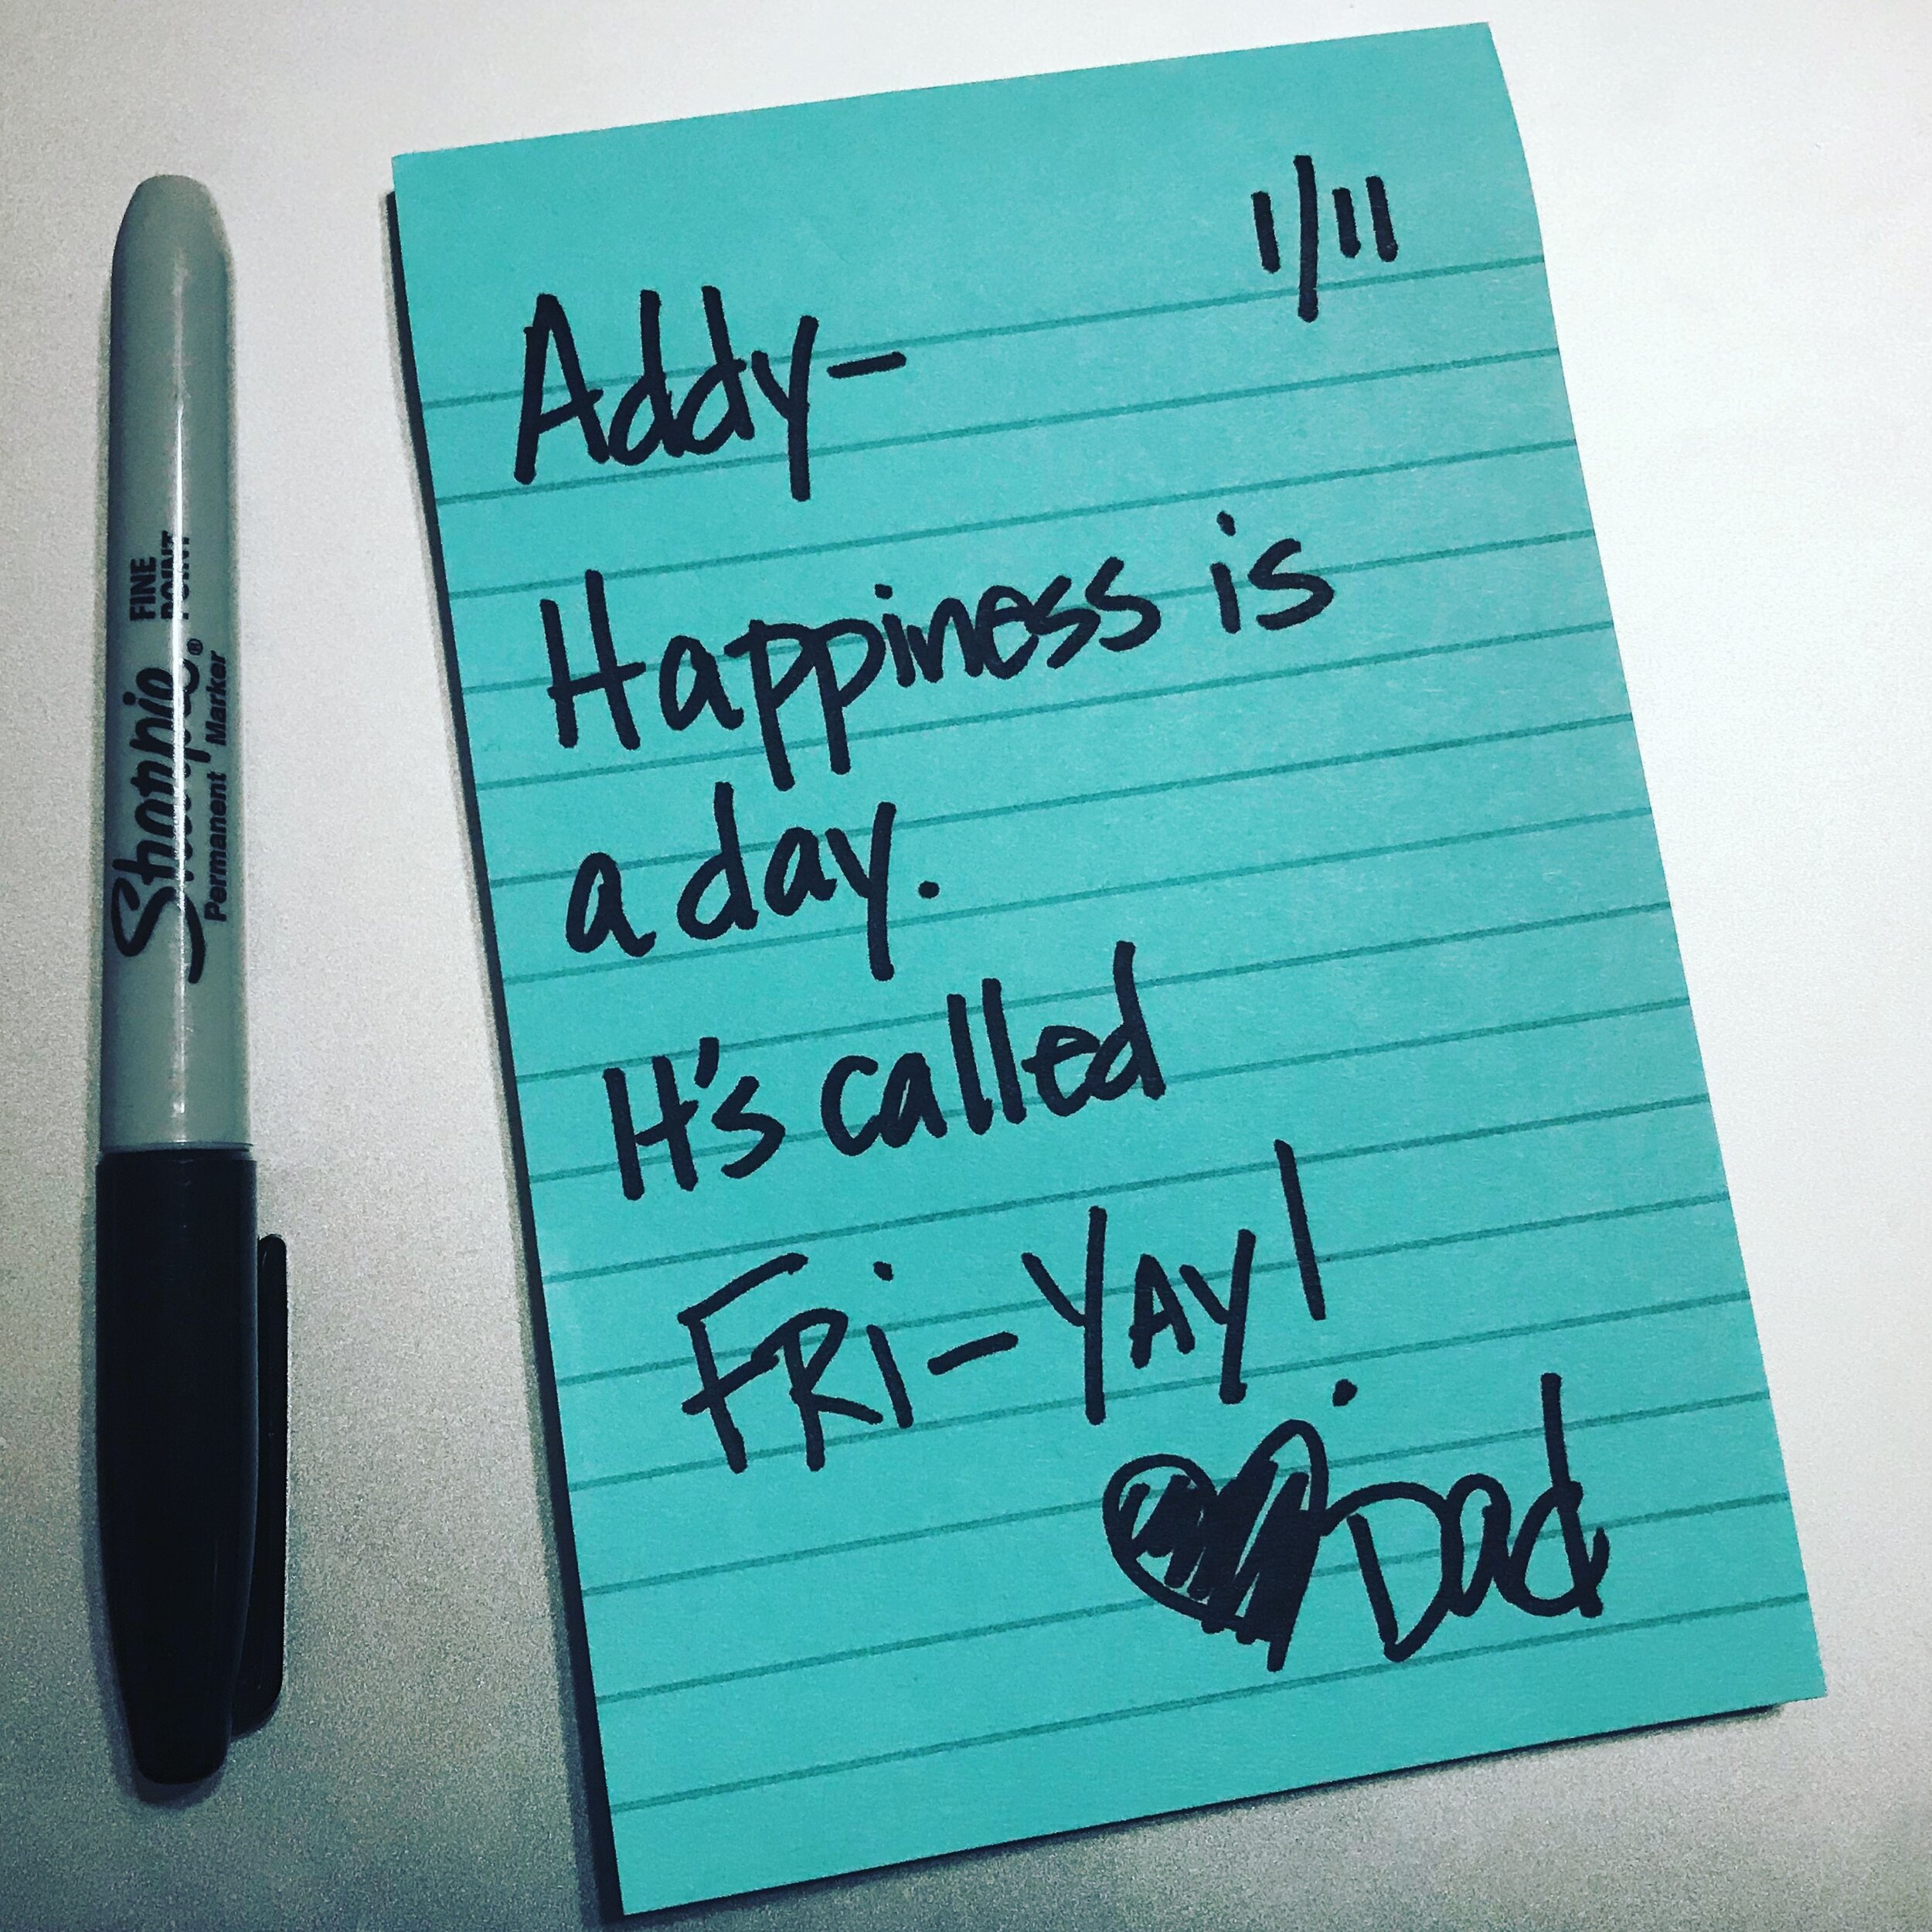 1/11
Addy-
Happiness is
a day.
It's called
FRi-YAY!
Dad
FINE
POINT
Sharpie®
Permanent Marker